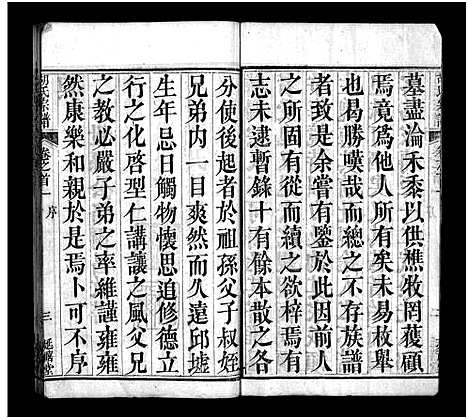 墓盡淪禾黍以供樵牧罔獲顧
焉竟爲他人所有矣未易枚舉
也曷勝嘆哉而總之不存族譜
之故於是余嘗有鑒於此而
因續而續之欲梓焉有
志未逮暫錄十有餘本散之各
分使後起者於祖孫父子叔姪
兄弟内一日爽然而久遠邱墟
生年忌日觸物懷思追修德立
行之化啓型仁講讓之風父兄
之教必嚴子弟之率維謹雍雍
然康樂和親於是焉卜可不序
胡氏宗譜
卷之首
序
三